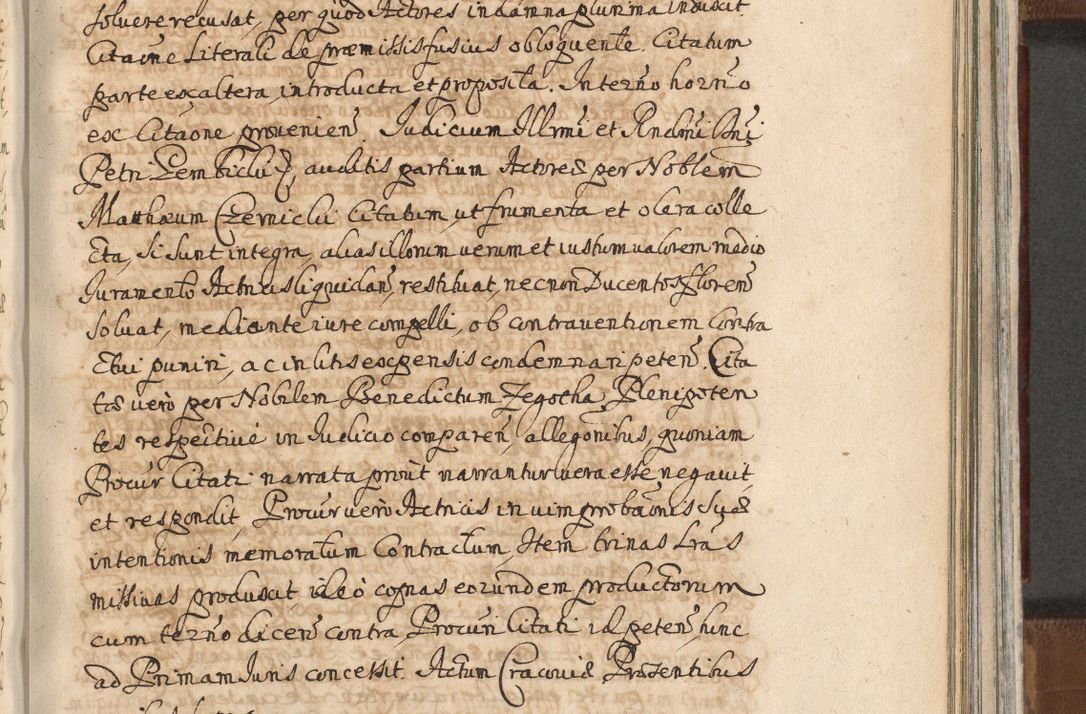 soluere recusat, per quod Actores in damna plurima induxit
Citaõne Literali de præmissis fusius obloquente. Citatum
parte ex altera, introducta et proposita. In terño horño
ex Citaõne provenien̄. Judicium Illrmi et Rndmi Dñi
Petri Gembicki, auditis partium Actores per Noblem
Matthæum Czernicki Citatum, ut frumenta et olera colle
cta, si sunt integra, alias illorum verum et iustum valorem medio
Juramento Actricis liquidan̄, restituat, necnon Ducentos floren̄
soluat, mediante iure compelli, ob contraventionem Contra
ctui puniri, ac in litis expensis condemnari peten̄. Cita
tos vero per Nobilem Benedictum Zegotha, Plenipoten
tes respective in Judicio comparen̄, allegonibus, quoniam
Procur Citati narrata prout narrantur vera esse negavit
et respondit, Procur vero Actricis in vim probaõnis suæ
intentionis memoratum Contractum, Item trinas Lras
missivas produxit ideo cognas eorundem productorum
cum terño dicen̄ contra Procuri Citati id peten̄, hunc
ad Primam Juris concessit. Actum Cracoviæ Præsentibus